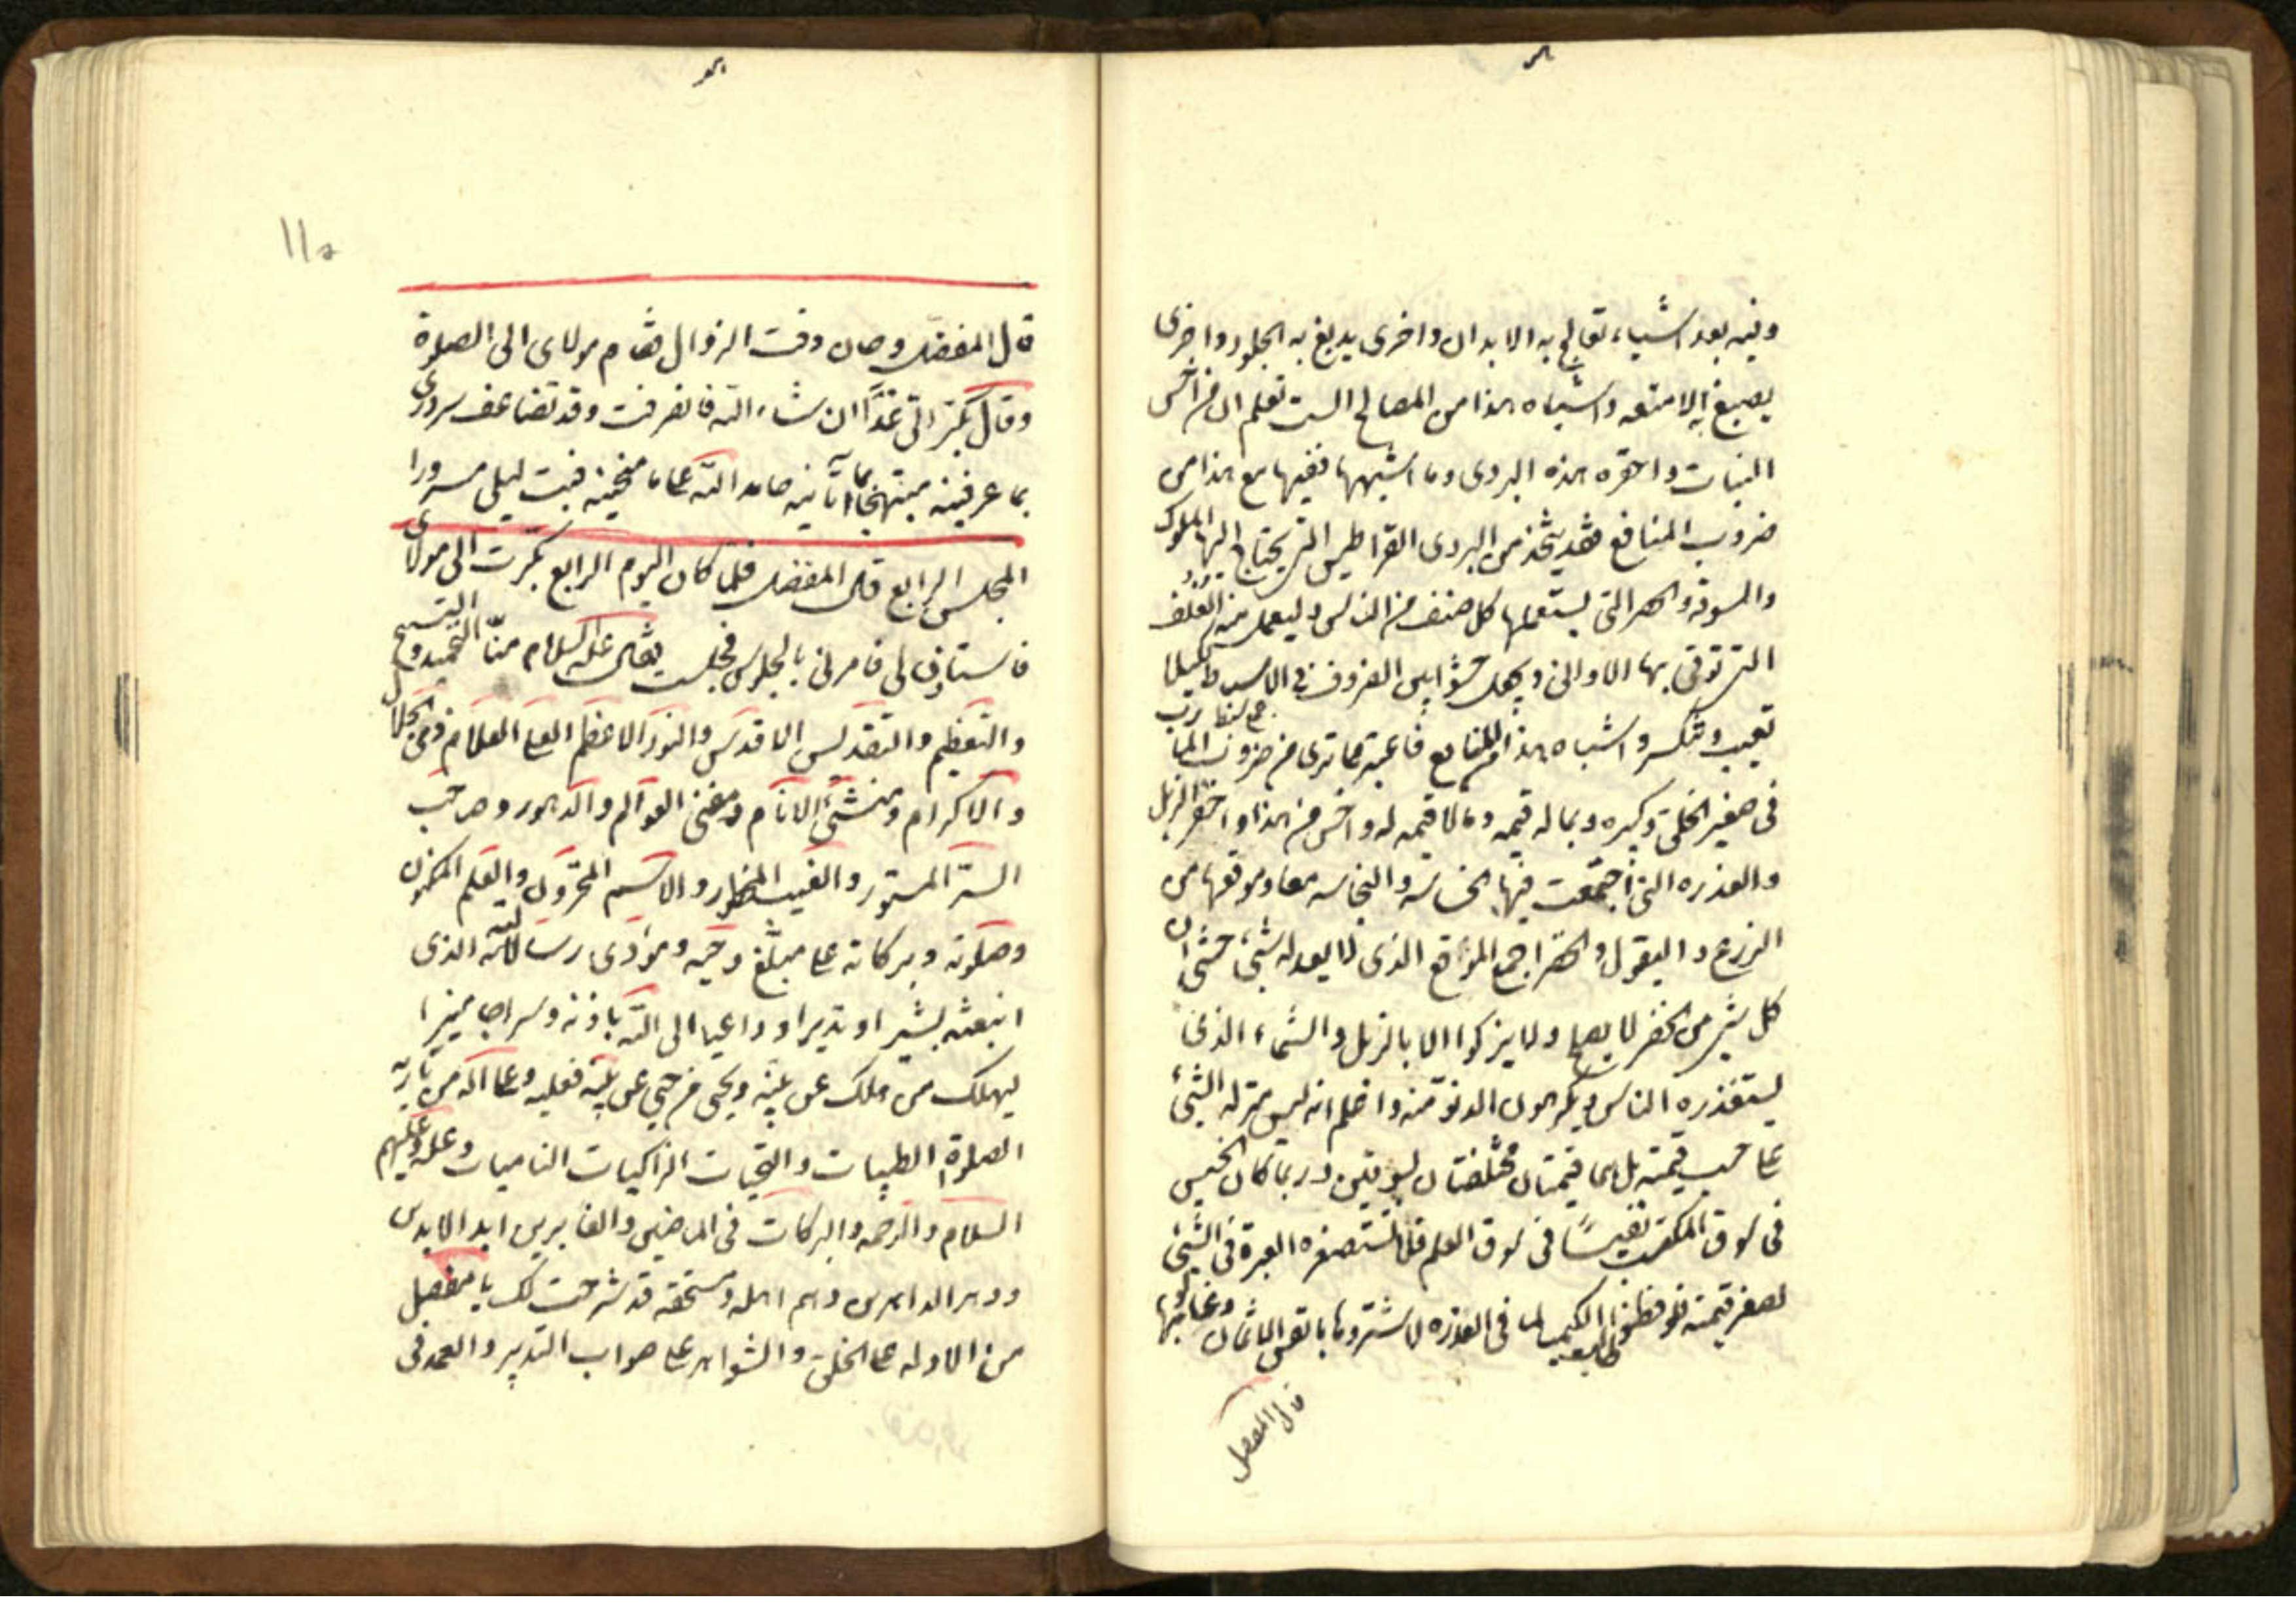 وفيه بعد اشياء تعالج به الابدان واخرى يدبغ به الجلود واخرى
يصبغ به الامتعه واشباه هذا من المصالح الست تعلم ان من اخس
النبات واحقره هذه البردى وما اشبهها ففيها مع هذا من
ضروب المنافع فقد يتخذ من البردى القراطيس التى يحتاج اليها الملوك
والسوقه والحصر التى يستعملها كل صنف من الناس وليعمل منه الغلف
التى توقى بها الاوانى ويجعل حشوا بين الظروف فى الاسفاط لكيلا
تعيب وتنكسر واشباه هذا من المنافع فاعتبر بما ترى من ضروب المآرب
فى صغير الخلق وكبيره وبما له قيمه وما لا قيمه له واخس من هذا واحقره الزبل
والعذره التى اجتمعت فيها الخساسه والنجاسه معا وموقعها من
الزرع والبقول والخضر اجمع الموقع الذى لا يعدله شىء حتى ان
كل شىء من الخضر لا يصلح ولا يزكوا الا بالزبل والسماد الذى
يستقذره الناس ويكرهون الدنو منه واعلم انه ليس منزله الشىء
على حسب قيمته بل هما قيمتان مختلفتان بسوقين وربما كان الخسيس
فى سوق المكتسب نفيسا فى سوق العلم فلا تستصغر العبرة فى الشىء
لصغر قيمته فلو فطنوا طالبوا الكيميا لما فى العذره لاشتروها بانفس الاثمان وغالوا بها
قال المفضل
١١٥
قال المفضل وحان وقت الزوال فقام مولاى الى الصلوة
وقال بكر الى غدا ان شاء الله فانصرفت وقد تضاعف سرورى
بما عرفنيه مبتهجا بما آتانيه حامدا لله على ما منحنيه فبت ليلى مسرورا
المجلس الرابع قال المفضل فلما كان اليوم الرابع بكرت الى مولاى
فاستاذن لى فامرنى بالجلوس فجلست فقال عليه السلام منا التحميد والتسبيح
والتعظيم والتقديس للاسم الاقدس والنور الاعظم العلى العلام ذى الجلال
والاكرام ومنشئ الانام ومفنى العوالم والدهور وصاحب
السر المستور والغيب المحظور والاسم المخزون والعلم المكنون
وصلوته وبركاته على مبلغ وحيه ومؤدى رسالته الذى
ابتعثه بشيرا ونذيرا وداعيا الى الله باذنه وسراجا منيرا
ليهلك من هلك عن بينه ويحيى من حى عن بينه فعليه وعلى اله من باريه
الصلوة الطيبات والتحيات الزاكيات الناميات وعليه وعليهم
السلام والرحمه والبركات فى الماضين والغابرين ابد الابدين
ودهر الداهرين وهم اهله ومستحقه قد شرحت لك يا مفضل
من الادله على الخلق والشواهد على صواب التدبير والعمد فى